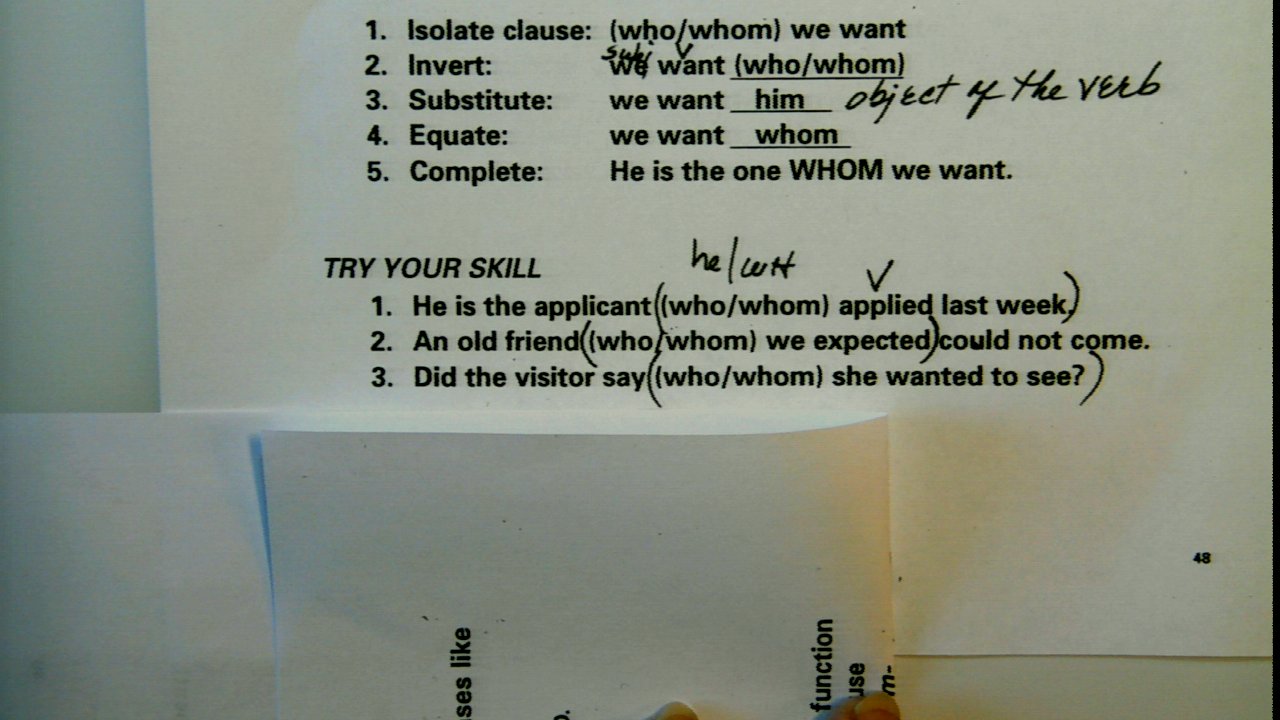 1. Isolate clause: (who/whom) we want
subj v
2. Invert: we want (who/whom)
3. Substitute: we want him object of the verb
4. Equate: we want whom
5. Complete: He is the one WHOM we want.
he/ v
TRY YOUR SKILL
1. He is the applicant ((who/whom) applied last week.)
2. An old friend ((who/whom) we expected) could not come.
3. Did the visitor say ((who/whom) she wanted to see?)
48
ses like
function
use
m-